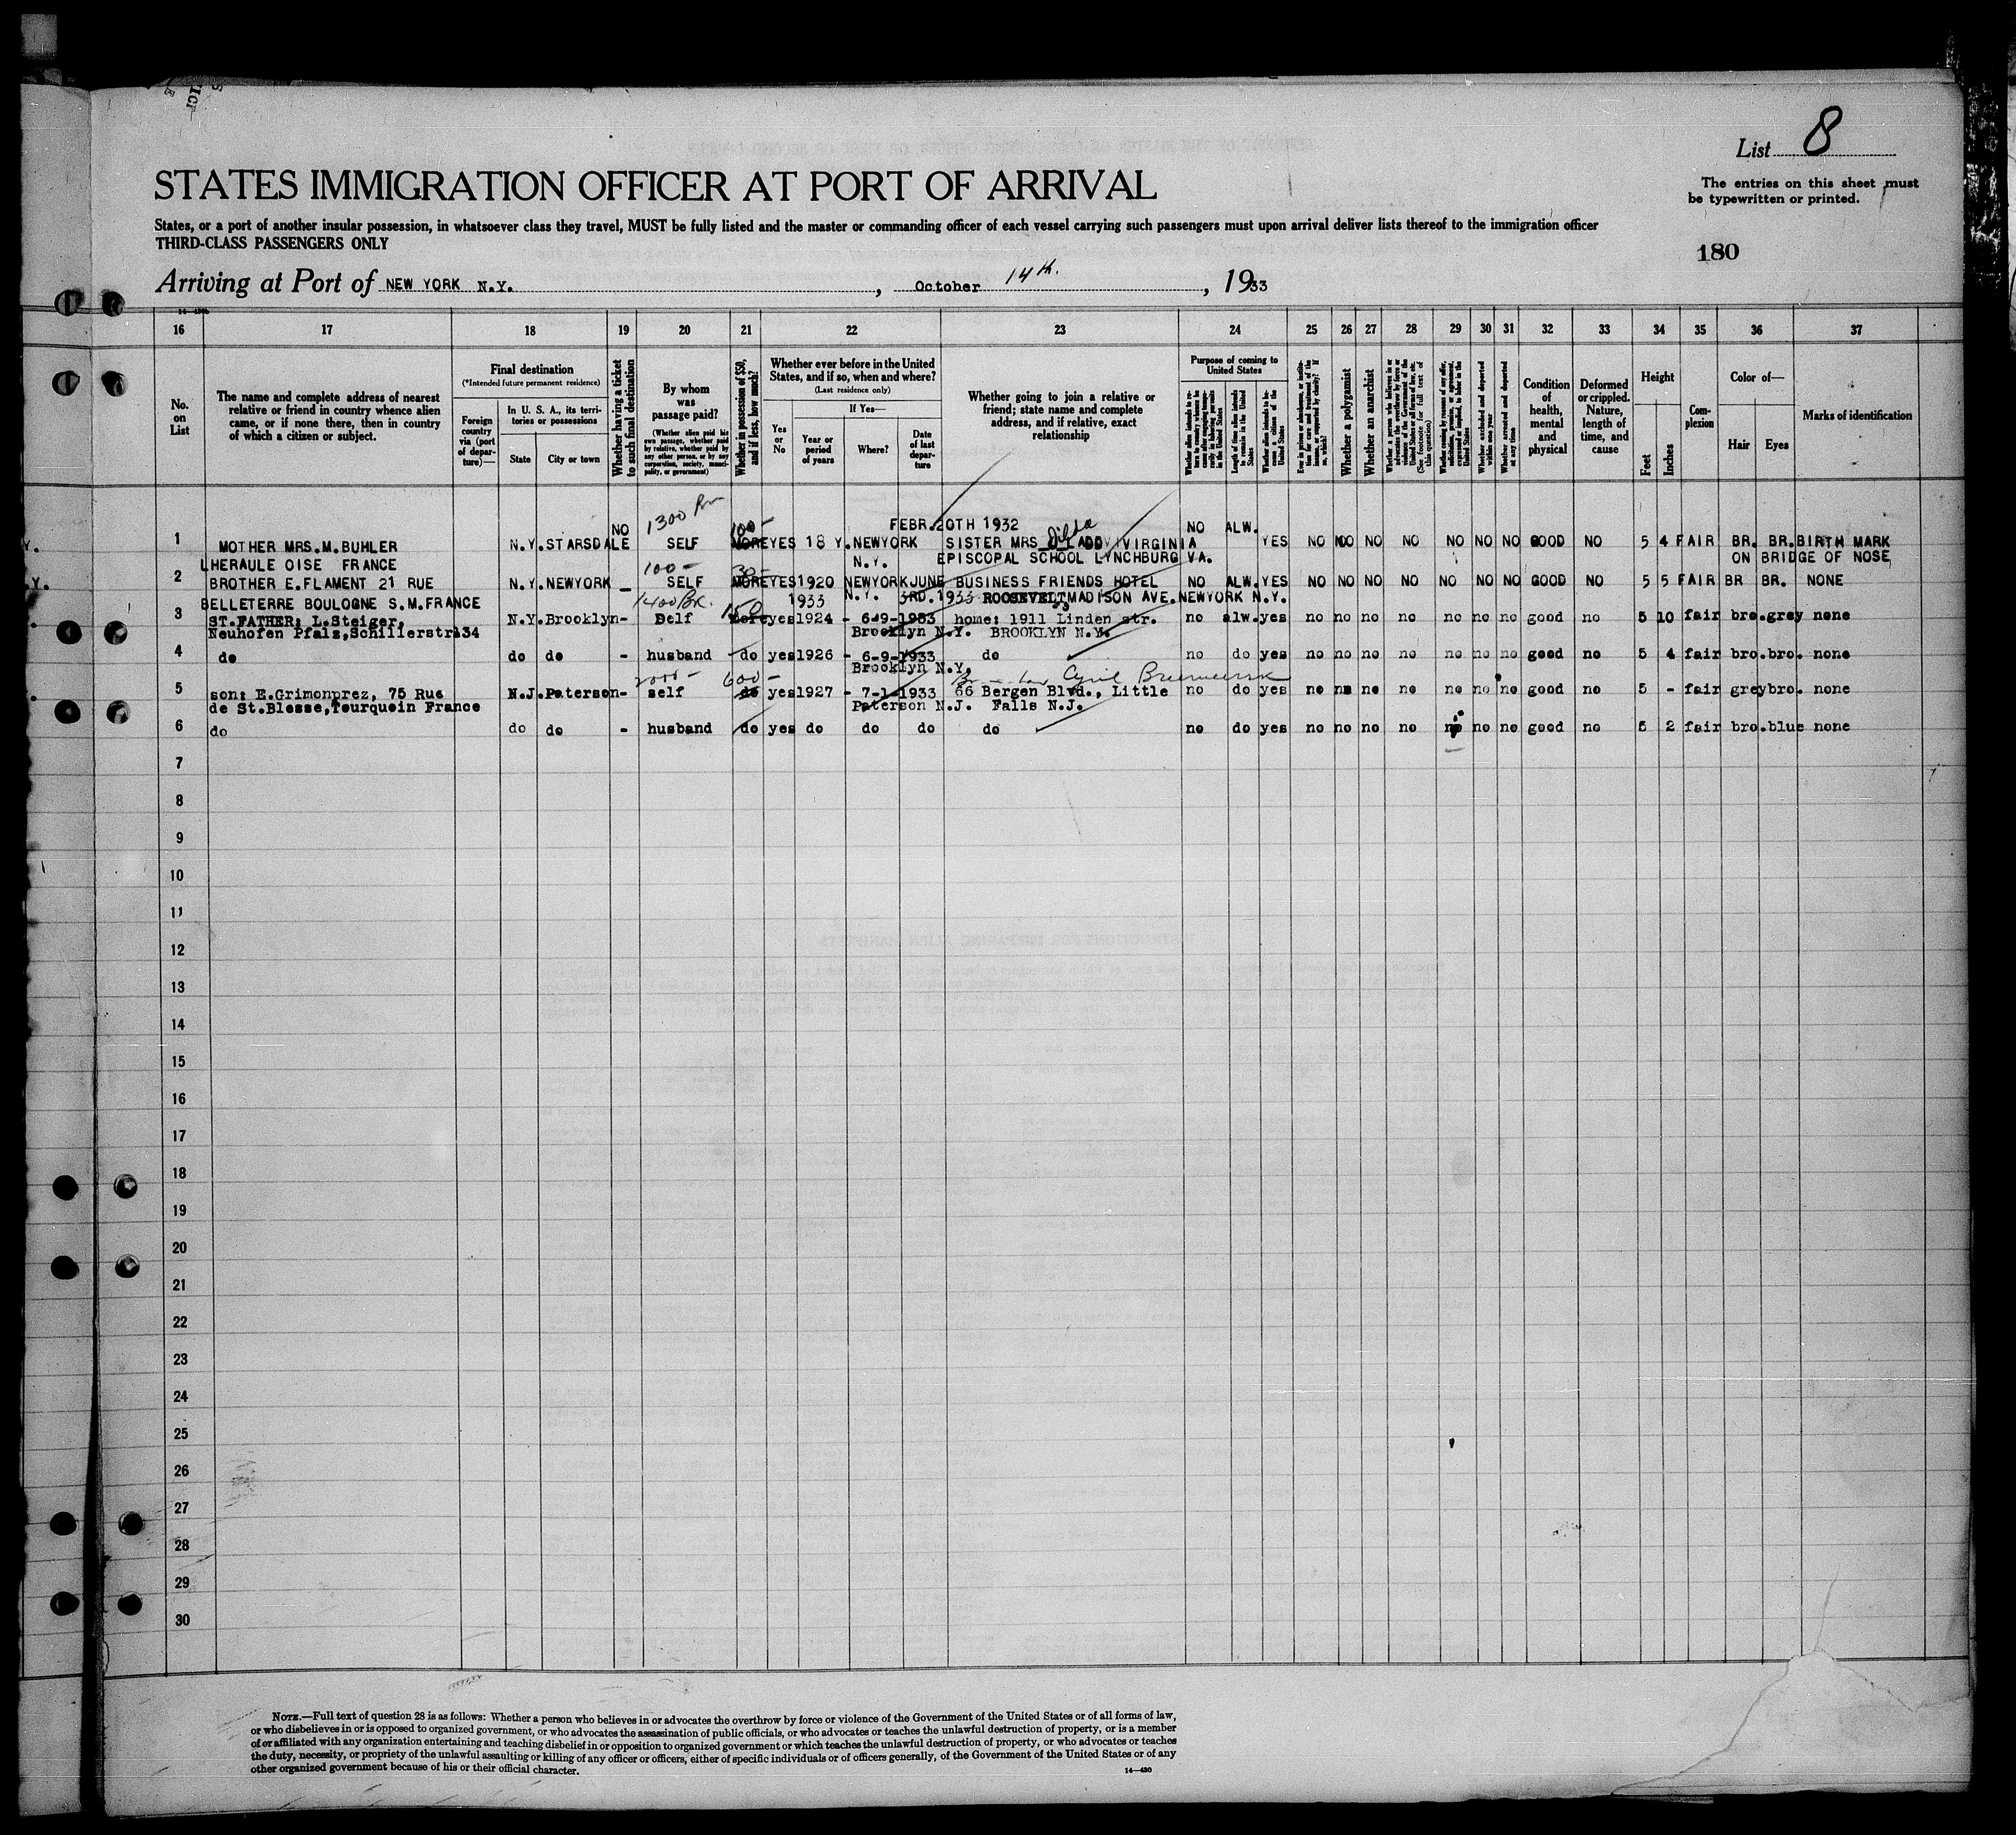 List 8
STATES IMMIGRATION OFFICER AT PORT OF ARRIVAL
The entries on this sheet must
be typewritten or printed.
States, or a port of another insular possession, in whatsoever class they travel, MUST be fully listed and the master or commanding officer of each vessel carrying such passengers must upon arrival deliver lists thereof to the immigration officer
THIRD-CLASS PASSENGERS ONLY
180
Arriving at Port of NEW YORK N.Y. , October 14th. , 1933
16 17 18 19 20 21 22 23 24 25 26 27 28 29 30 31 32 33 34 35 36 37
No. on List
The name and complete address of nearest relative or friend in country whence alien came, or if none there, then in country of which a citizen or subject.
Final destination
(*Intended future permanent residence)
Foreign country via (port of departure)—
In U. S. A., its territories or possessions
State
City or town
Whether having a ticket to such final destination
By whom was passage paid?
(Whether alien paid his own passage, whether paid by relative, whether paid by any other person, or by any corporation, society, municipality, or government)
Whether in possession of $50, and if less, how much?
Whether ever before in the United States, and if so, when and where?
(Last residence only)
Yes or No
If Yes—
Year or period of years
Where?
Date of last departure
Whether going to join a relative or friend; state name and complete address, and if relative, exact relationship
Purpose of coming to United States
Whether alien intends to return to country whence he came after engaging temporarily in laboring pursuits in the United States
Length of time alien intends to remain in the United States
Whether alien intends to become a citizen of the United States
Whether a polygamist
Whether an anarchist
(See footnote for full text of this question)
Whether excluded and deported within one year
Whether arrested and deported at any time
Condition of health, mental and physical
Deformed or crippled. Nature, length of time, and cause
Height
Feet
Inches
Complexion
Color of—
Hair
Eyes
Marks of identification
NO 1300 100- FEBR.20TH 1932 NO ALW.
1 MOTHER MRS.M.BUHLER N.Y. STARSDALE SELF MORE YES 18 Y. NEWYORK SISTER MRS LADD VIRGINIA YES NO NO NO NO NO NO NO GOOD NO 5 4 FAIR BR. BR. BIRTH MARK
LHERAULE OISE FRANCE 100- 30- N.Y. EPISCOPAL SCHOOL LYNCHBURG VA. ON BRIDGE OF NOSE
2 BROTHER E.FLAMENT 21 RUE N.Y. NEWYORK _ SELF MORE YES 1920 NEWYORK JUNE BUSINESS FRIENDS HOTEL NO ALW. YES NO NO NO NO NO NO NO GOOD NO 5 5 FAIR BR BR. NONE
BELLETERRE BOULOGNE S.M.FRANCE 1400 150 1933 N.Y. 3RD.1933 ROOSEVELT MADISON AVE.NEWYORK N.Y.
3 ST.FATHER: L.Steiger, N.Y. Brooklyn - Self more yes 1924 - 6-9-1933 home: 1911 Linden str. no alw. yes no no no no no no no good no 5 10 fair bro. grey none
Neuhofen Pfalz,Schillerstr134 Brooklyn N.Y. BROOKLYN N.Y.
4 do do do - husband do yes 1926 - 6-9-1933 do no do yes no no no no no no no good no 5 4 fair bro. bro. none
2000- 600- Brooklyn N.Y. Cyril
5 son: E.Grimonprez, 75 Rue N.J. Paterson - self do yes 1927 - 7-1-1933 66 Bergen Blvd., Little no do yes no no no no no no no good no 5 - fair grey bro. none
de St.Blesse,Tourquoin France Paterson N.J. Falls N.J.
6 do do do - husband do yes do do do do no do yes no no no no no no no good no 5 2 fair bro. blue none
7
8
9
10
11
12
13
14
15
16
17
18
19
20
21
22
23
24
25
26
27
28
29
30
NOTE.—Full text of question 28 is as follows: Whether a person who believes in or advocates the overthrow by force or violence of the Government of the United States or of all forms of law,
or who disbelieves in or is opposed to organized government, or who advocates the assassination of public officials, or who advocates or teaches the unlawful destruction of property, or is a member
of or affiliated with any organization entertaining and teaching disbelief in or opposition to organized government or which teaches the unlawful destruction of property, or who advocates or teaches
the duty, necessity, or propriety of the unlawful assaulting or killing of any officer or officers, either of specific individuals or of officers generally, of the Government of the United States or of any
other organized government because of his or their official character.
14—430